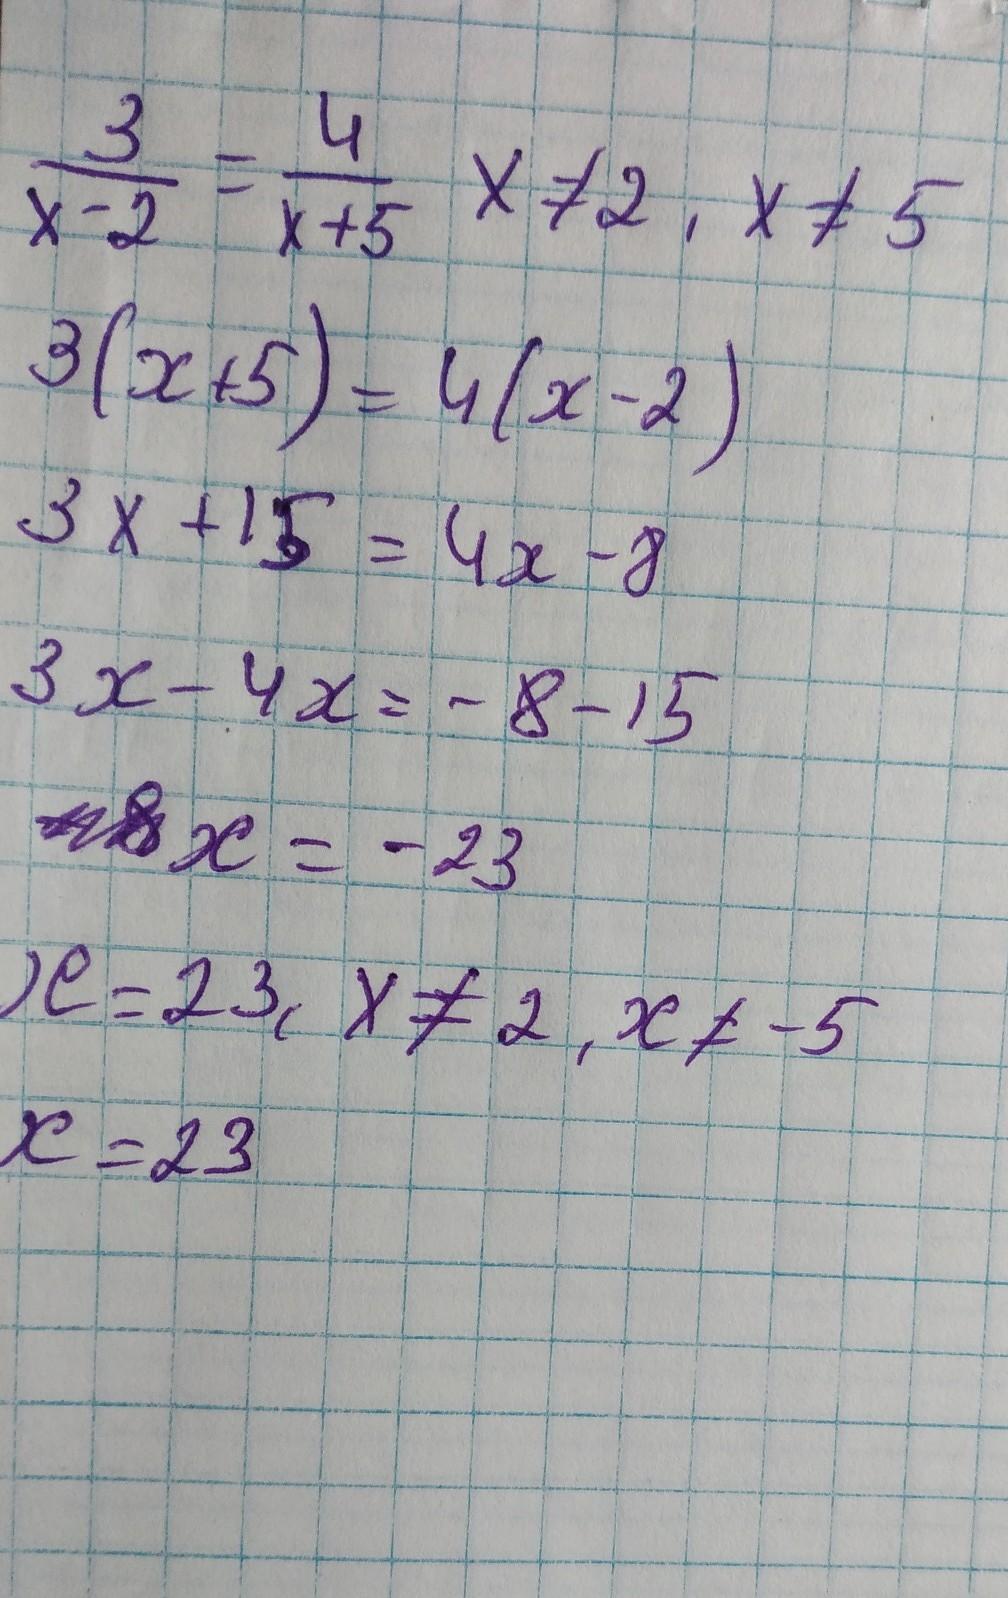 3/(x-2) = 4/(x+5) x ≠ 2, x ≠ 5
3(x+5) = 4(x-2)
3x + 15 = 4x - 8
3x - 4x = -8 - 15
x = -23
x = 23, x ≠ 2, x ≠ -5
x = 23